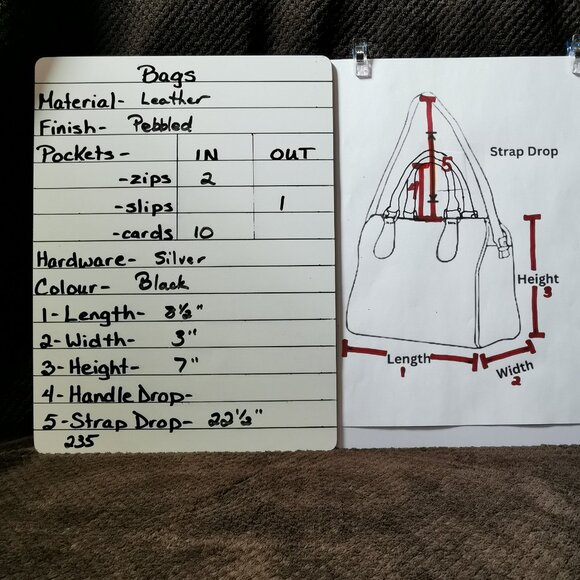 Bags
Material- Leather
Finish- Pebbled
Pockets- IN OUT
-zips 2
-slips 1
-cards 10
Hardware- Silver
Colour- Black
1-Length- 8½"
2-Width- 3"
3-Height- 7"
4-Handle Drop-
5-Strap Drop- 22½"
235
Strap Drop
5
4
Height
3
Length
1
Width
2